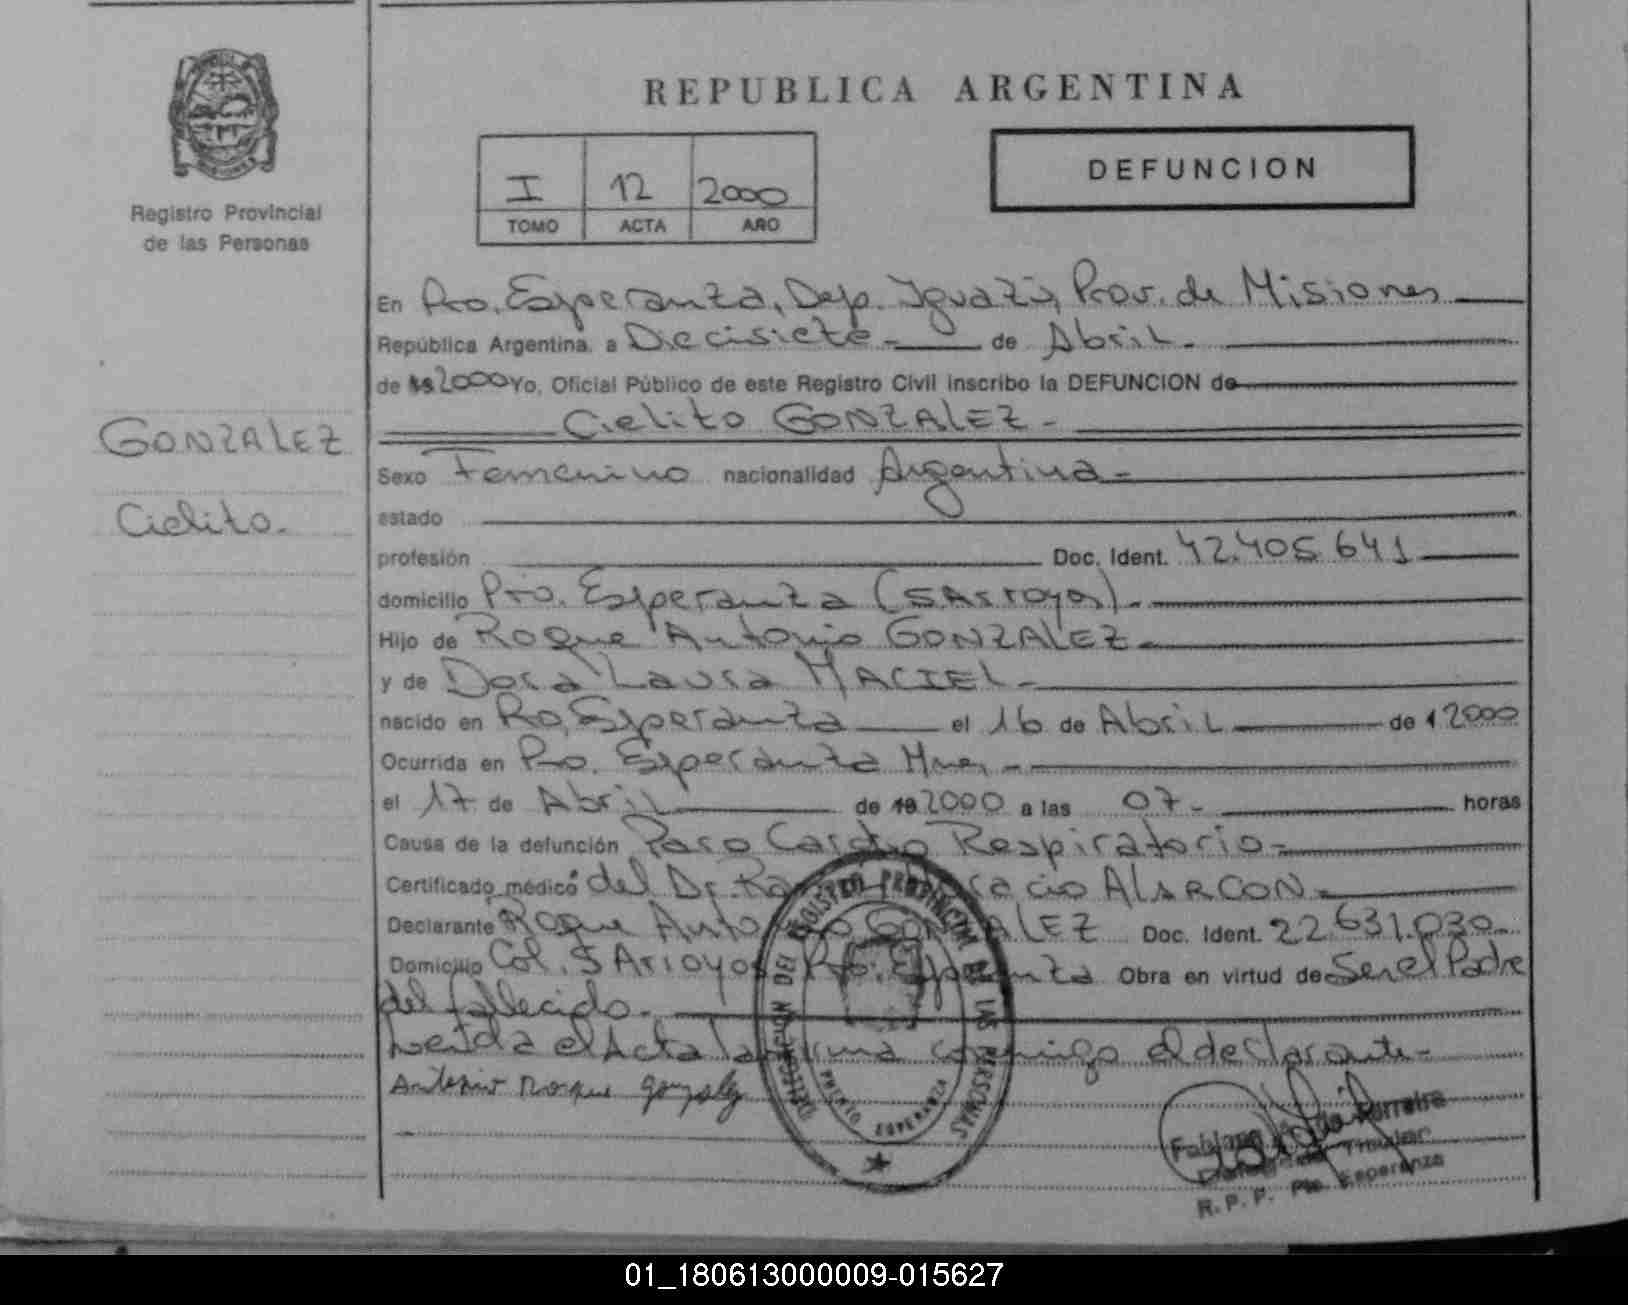 REPUBLICA ARGENTINA
I 12 2000
TOMO ACTA AÑO
DEFUNCION
Registro Provincial
de las Personas
GONZALEZ
Cielito.
En Pto. Esperanza, Dep. Iguazú, Prov. de Misiones
República Argentina, a Diecisiete de Abril.
de 2000 Yo, Oficial Público de este Registro Civil inscribo la DEFUNCION de
Cielito GONZALEZ
Sexo Femenino nacionalidad Argentina
estado
profesión Doc. Ident. 42.405.641
domicilio Pto. Esperanza (5 Arroyos).
Hijo de Roque Antonio GONZALEZ
y de Dora Laura MACIEL
nacido en Pto. Esperanza el 16 de Abril de 2000
Ocurrida en Pto. Esperanza Mnes.
el 17 de Abril de 2000 a las 07 horas
Causa de la defunción Paro Cardio Respiratorio
Certificado médico del Dr. ALARCON
Declarante Roque Antonio GONZALEZ Doc. Ident. 22.631.030
Domicilio Col. 5 Arroyos Pto. Esperanza Obra en virtud de Ser el Padre
del fallecido.
Leida el Acta la firma conmigo el declarante
Antonio Roque Gonzalez
DELEGACION DEL REGISTRO PROVINCIAL DE LAS PERSONAS
PUERTO ESPERANZA
Ferreira
Titular
R. P. P. Pto. Esperanza
01_180613000009-015627